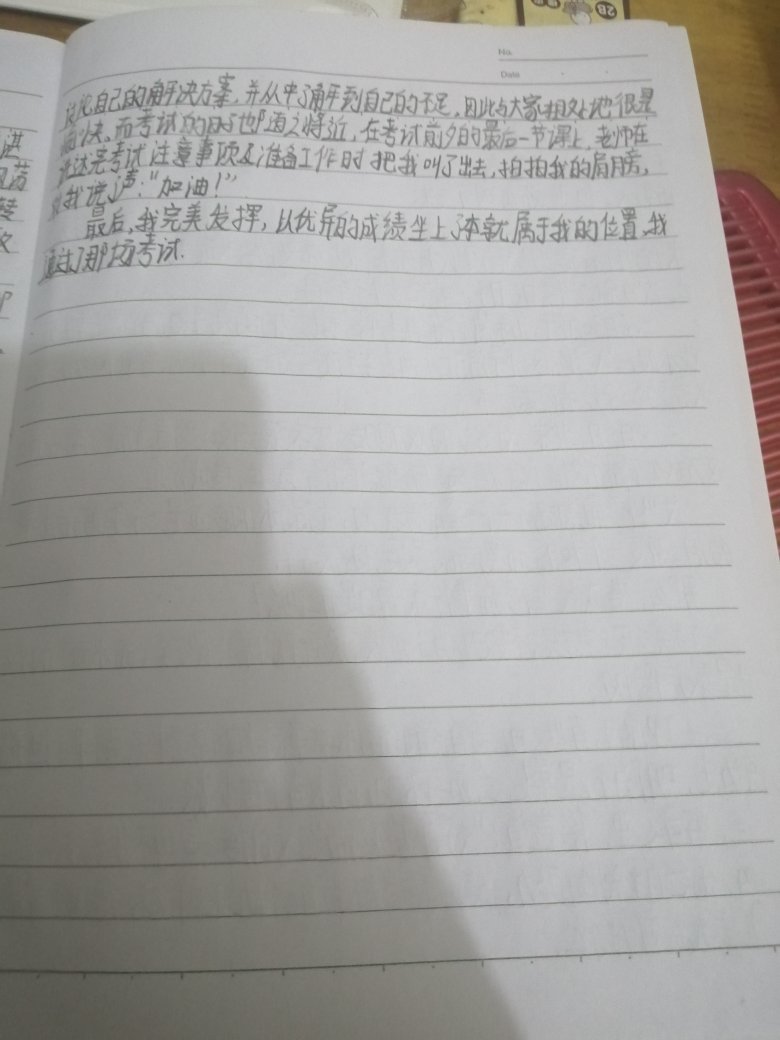 No.
Date
2B
谈论自己的解决方案,并从中了解到自己的不足,因此与大家相处地很是
愉快、而考试的日子也随之将近,在考试前夕的最后一节课上,老师在
讲述完考试注意事项及准备工作时把我叫了出去,拍拍我的肩膀,
对我说了声:“加油!”
最后,我完美发挥,以优异的成绩坐上了本就属于我的位置,我
通过了那场考试.